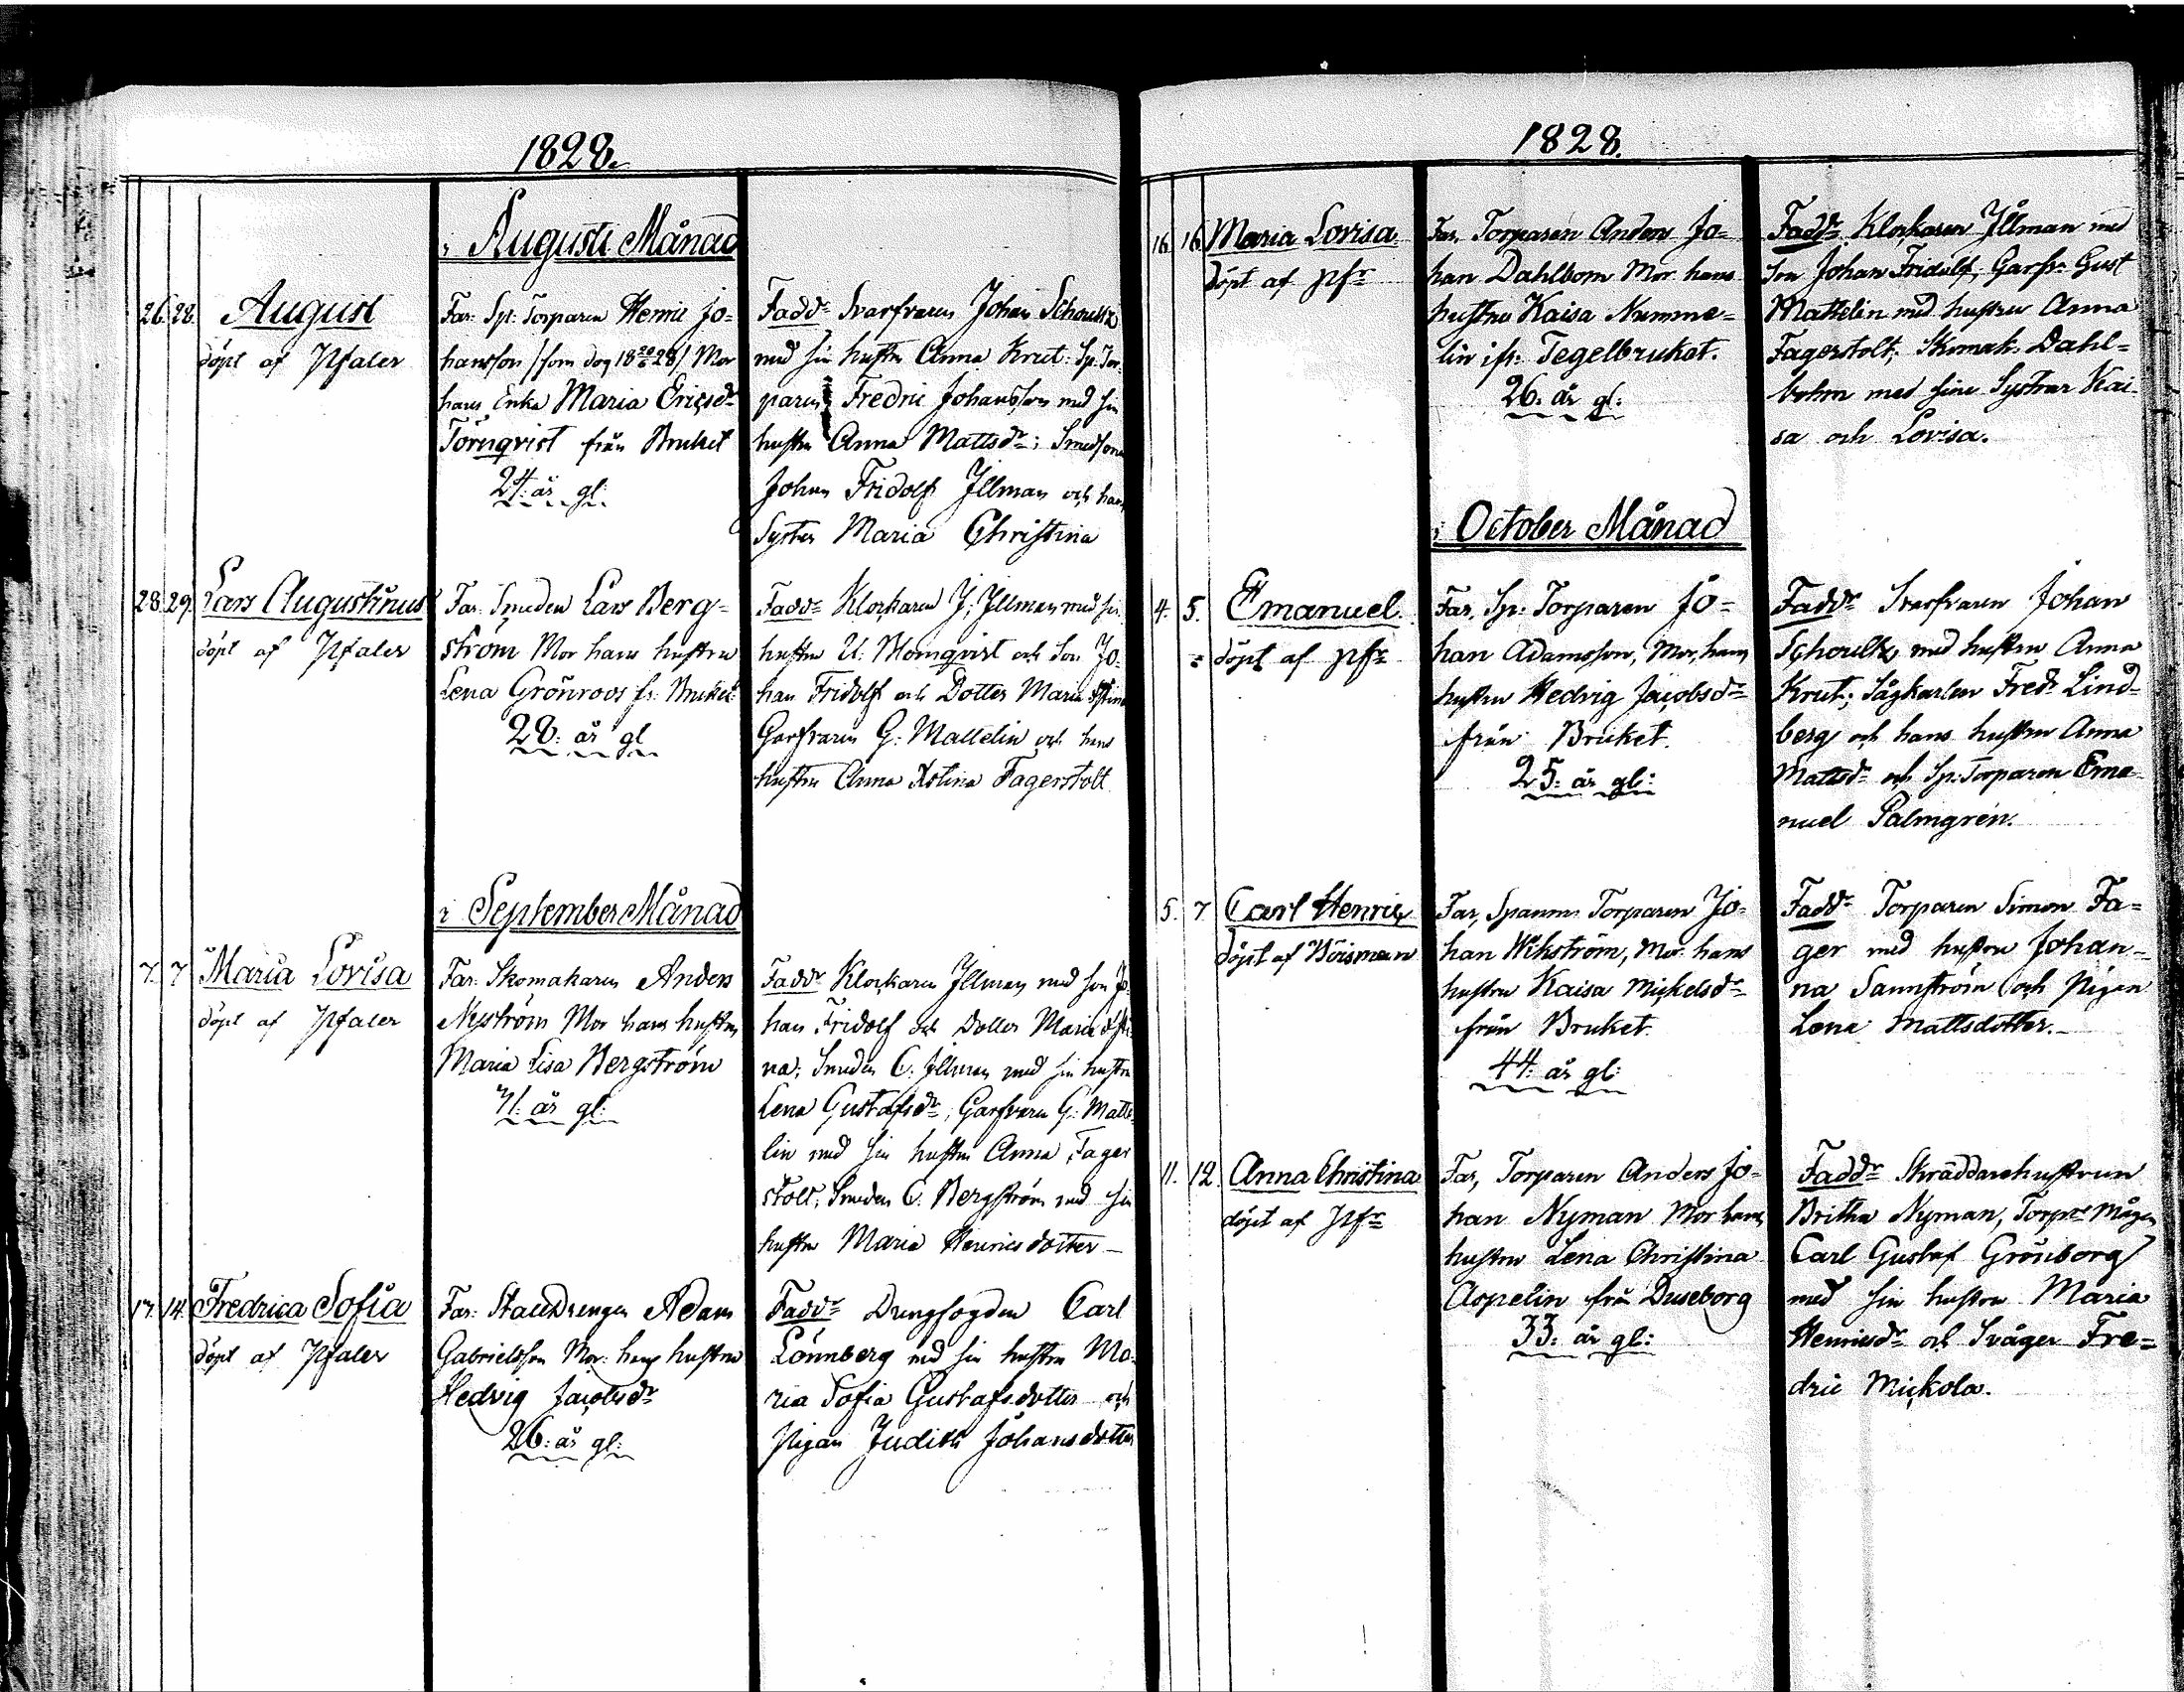 1828.
i Augusti Månad
26. 28. August
döpt af Pfaler
Far: Sp: Torparen Henric Jo=
hansson /: som dog 18 28/ Mor
hans Enka Maria Ericsdr
Törnqvist från Bruket
24. år gl:
Faddr Svarfvaren Johan Schoultz
med sin hustru Anna Krut: Sp. Tor-
paren Fredric Johansson med sin
hustru Anna Mattsdr; Smedsonen
Johan Fridolf Illman och hans
Syster Maria Christina
28. 29. Lars Augustinus
döpt af Pfaler
Far: Smeden Lars Berg=
ström Mor hans hustru
Lena Grönroos fr: Bruket
28: år gl
Faddr Klockaren J. Illman med sin
hustru U: Blomqvist och Son Jo-
han Fridolf och Dotter Maria Stina
Garfvaren G: Mattelin och hans
hustru Anna Xstina Fagerstolt
i September Månad
7. 7 Maria Lovisa
döpt af Pfaler
Far: Skomakaren Anders
Nyström Mor hans hustru
Maria Lisa Bergström
år gl:
Faddr Klockaren Illman med son Jo-
han Fridolf och Dotter Maria Sti-
na; Smeden C: Illman med sin hustru
Lena Gustafsdr; Garfvaren G: Matte-
lin med sin hustru Anna Fager
stolt; Smeden C. Bergström med sin
hustru Maria Henricsdotter
14. Fredrica Sofia
döpt af Pfaler
Far: Stalldrengen Adam
Gabrielsson Mor: hans hustru
Hedvig Jacobsdr
26: år gl:
Faddr Drengfogden Carl
Lönnberg med sin hustru Ma-
ria Sofia Gustafsdotter och
Pigan Judith Johansdotter
1828.
16. 16. Maria Lovisa.
döpt af Pfr
Far, Torparen Anders Jo=
han Dahlbom Mor hans
hustru Kaisa Numme=
lin ifr: Tegelbruket.
26. år gl:
Faddr Klockaren Illman med
Son Johan Fridolf; Garfv: Gust
Mattelin med hustru Anna
Fagerstolt; Skomak. Dahl=
bohm med sine Systrar Kai-
sa och Lovisa.
i October Månad
4. 5. Emanuel.
döpt af Pfr
Far, Sp: Torparen Jo=
han Adamsson, Mor, hans
hustru Hedvig Jacobsdr
från Bruket.
25: år gl:
Faddr Svarfvaren Johan
Schoultz med hustru Anna
Krut; Sågkarlen Fredr Lind=
berg och hans hustru Anna
Mattsdr och Sp: Torparen Ema-
nuel Palmgrén.
5. 7. Carl Henric
döpt af Böisman
Far, Spannm: Torparen Jo-
han Wikström, Mor: hans
hustru Kaisa Mickelsdr
från Bruket.
44: år gl:
Faddr Torparen Simon Fa=
ger med hustru Johan=
na Sannström och Pigan
Lena Mattsdotter.
11. 12. Anna Christina
döpt af Pfr
Far, Torparen Anders Jo-
han Nyman Mor hans
hustru Lena Christina
Aspelin från Duseborg
33: år gl:
Faddr Skräddarehustrun
Britha Nyman, Torpre Mågen
Carl Gustaf Grönborg
med sin hustru Maria
Henricsdr och Svåger Fre=
dric Mickola.